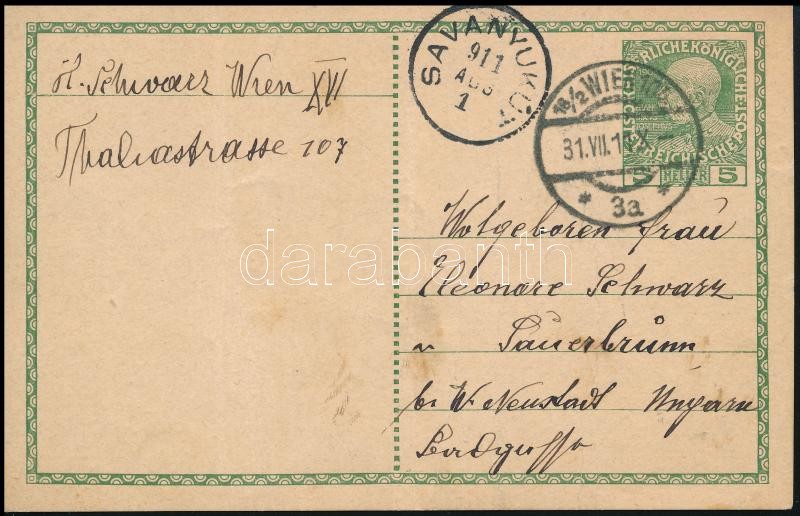 H. Schwarz Wien XVI
Thaliastrasse 107
SAVANYUKUT
911
AUG
1
18/2 WIEN
31.VII.11
* 3a *
KAISERLICHEKÖNIGLICHEÖSTERREICHISCHE
5 HELLER 5
Wolgeboren frau
Eleonore Schwarz
Sauerbrunn
bei W. Neustadt Ungarn
Badgasse
darabanth